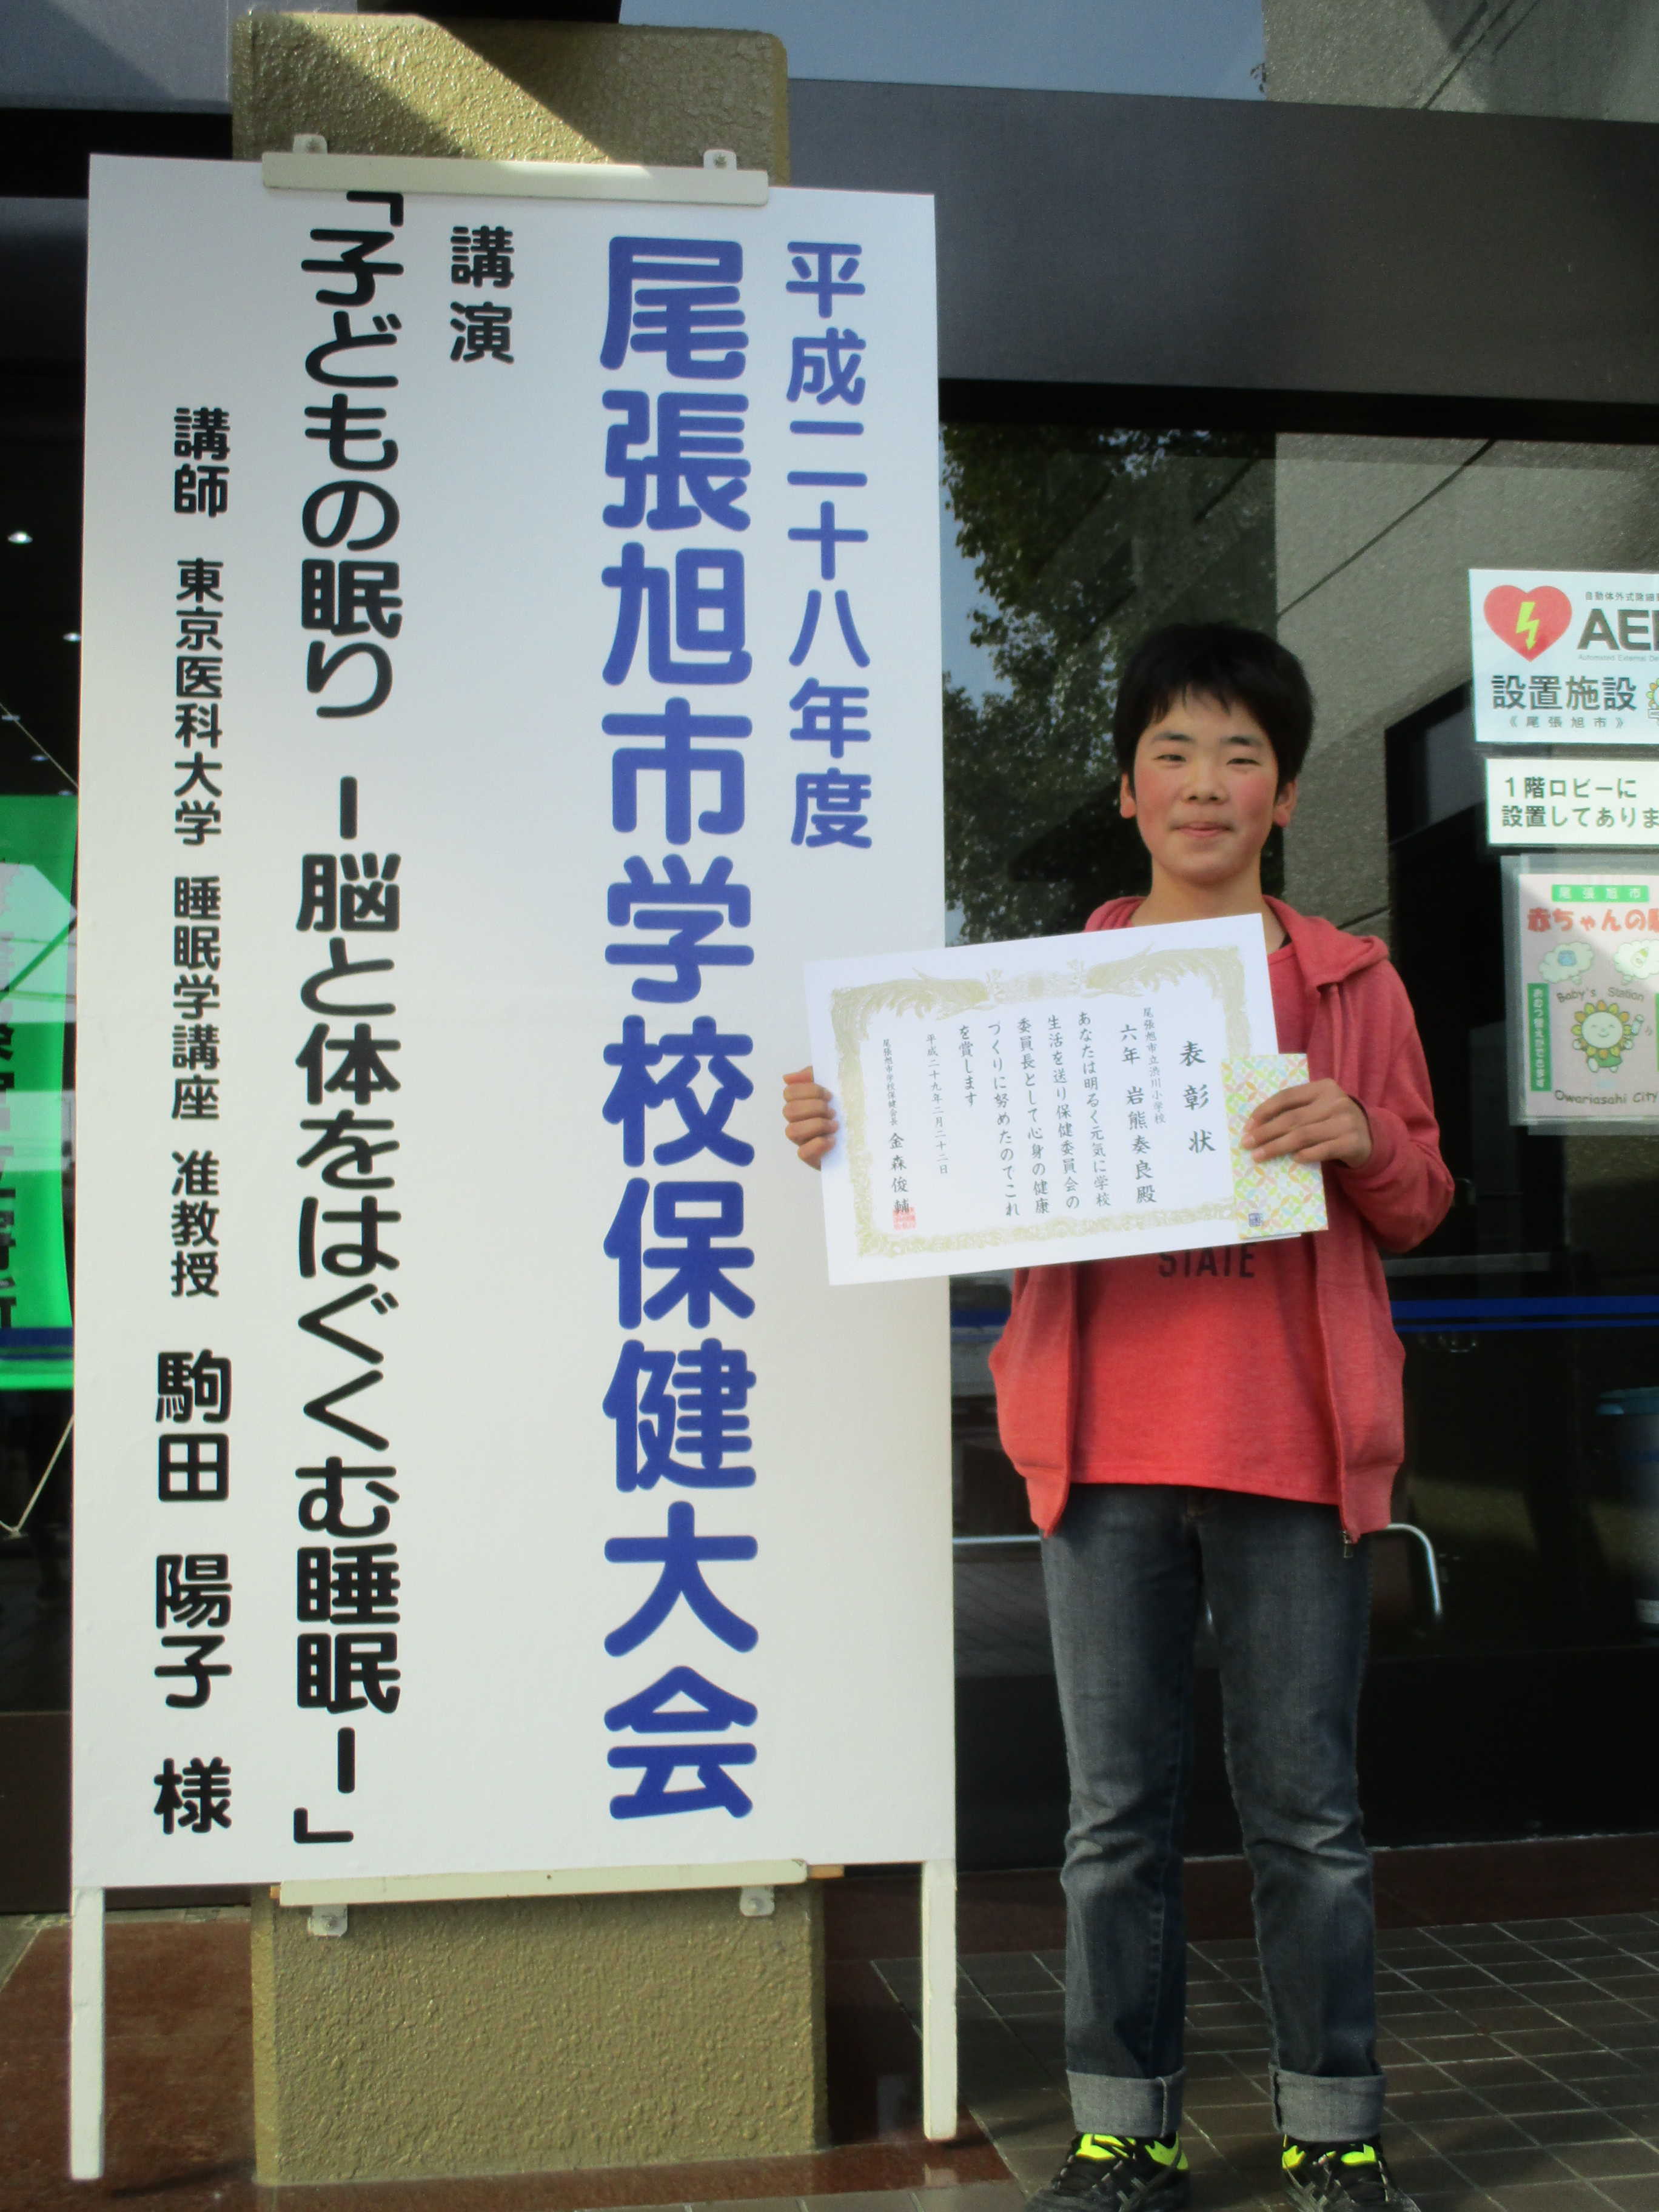 平成二十八年度
尾張旭市学校保健大会
講演
「子どもの眠り －脳と体をはぐくむ睡眠－」
講師 東京医科大学 睡眠学講座 准教授 駒田 陽子 様
表彰状
尾張旭市立渋川小学校
六年 岩熊奏良殿
あなたは明るく元気に学校
生活を送り保健委員会の
委員長として心身の健康
づくりに努めたのでこれ
を賞します
平成二十九年二月二十二日
尾張旭市学校保健会長 金森俊輔
STATE
自動体外式除細
AE
設置施設
《尾張旭市》
1階ロビーに
設置してありま
尾張旭市
赤ちゃんの
Baby's Station
おむつ替えができます
Owariasahi City